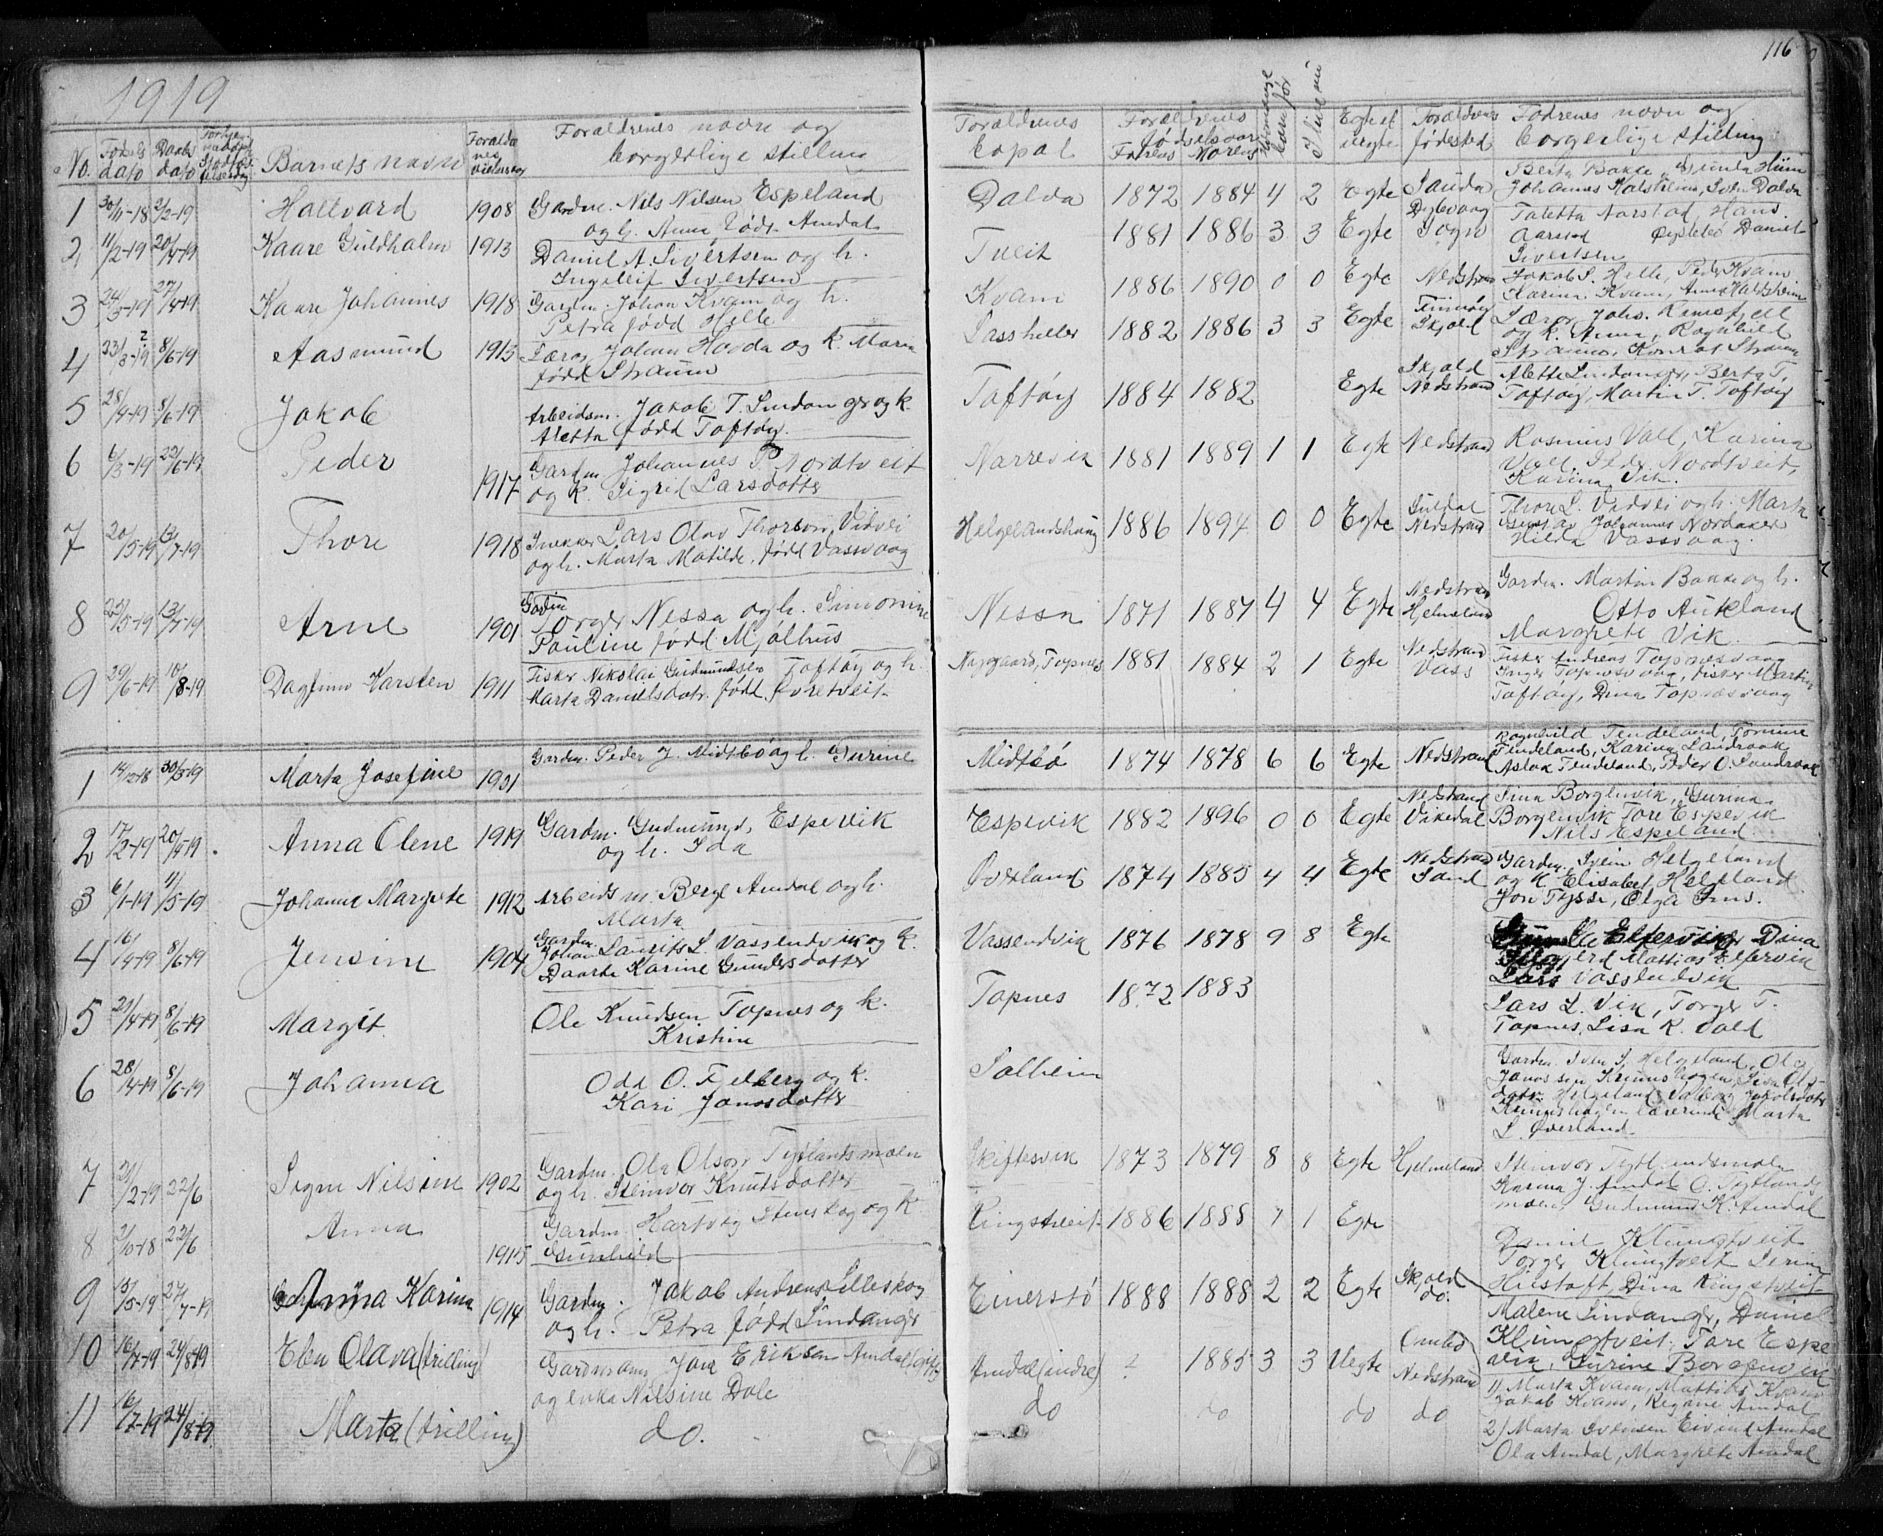 116
1919
No.
Barnets navn
Foraldrenes navn og
borgerlige stilling
Foraldrenes
bopæl
Foraldrenes
fødselsaar
Farens Morens
Egte el
uegte
Foraldrenes
fødested
Fadrenes navn og
borgerlige stilling
1 30/11-18 2/2-19 Hallvard 1908 Gardm. Nils Nilsen Espeland
og h. Anna født Amdal
Dalda 1872 1884 4 2 Egte Sauda
Berta Bakke, Hiim
Johannes Halsheim, Sven Dalda
2 11/2-19 20/4-19 Kaare Guldholm 1913 Daniel A. Sivertsen og h.
Ingeleif Sivertsen
Tveit 1881 1886 3 3 Egte Sogn
Taletta Aarstad, Hans
Aarstad Øysleb Daniel
Sivertsen
3 24/3-19 27/4-19 Kaare Johannes 1918 Gardm. Johan Kvam og h.
Petra født Helle
Kvam 1886 1890 0 0 Egte Nedstrand
Jakob S. Helle, Peder Kvam
Karina Kvam, Anna Halsheim
4 23/3-19 8/6-19 Aasmund 1913 Lærer Johan Hovda og k. Maria
født Straum
Lassheller 1882 1886 3 3 Egte Skjold
Lærer Johs. Ramsfjell
og k. Anna, Ragnhild
Straum, Konrad Straum
5 28/4-19 8/6-19 Jakob Arbeidsm. Jakob T. Lindanger og k.
Aletta født Toftøy.
Toftøy 1884 1882 Egte Skjold
Nedstrand
Alette Lindanger, Berta T.
Toftøy, Martin T. Toftøy
6 6/3-19 22/6-19 Peder 1917 Gardm. Johannes P. Nordtveit
og k. Sigrid Larsdatter
Narrevik 1881 1889 1 1 Egte Nedstrand
Rasmus Vall, Karina
Vall, Peder Nordtveit,
Karina Vik.
7 20/5-19 13/7-19 Thore 1918 Snekker Lars Olav Thorsen Vidvei
og h. Marta Matilde, født Vassvaag
Helgelandshaug 1886 1894 0 0 Egte Suldal
Nedstrand
Thore L. Vidvei og h. Marta
Johannes Nordaker
Hilda Vassvaag.
8 25/5-19 13/7-19 Arne 1901 Gardm.
Torger Nessa og h. Simonine
Pauline født Mjølhus
Nessa 1871 1887 4 4 Egte Nedstrand
Hjelmeland
Gardm. Martin Bakke og h.
Otto Aukland
Margrete Vik.
9 29/6-19 10/8-19 Dagfinn Karsten 1911 Fisker Nikolai Gudmundsen Toftøy og h.
Marta Danielsdatr. født Øvretveit
Nygaard, Topnes 1881 1884 2 1 Egte Nedstrand
Vass
Fisker Andreas Topnesvaag
Inger Topnesvaag, fisker Martin
Toftøy, Dina Topnesvaag
1 14/12-18 30/3-19 Marta Josefine 1901 Gardm. Peder J. Midtbø og h. Gurine
Midtbø 1874 1878 6 6 Egte Nedstrand
Ragnhild Tendeland, Tomine
Tendeland, Karina Landraak
Aslak Tendeland, Peder O. Landraak
2 17/2-19 20/4-19 Anna Olene 1919 Gardm. Gudmund, Espevik
og h. Ida
Espevik 1882 1896 0 0 Egte Nedstrand
Vikedal
Sina Borgenvik, Gurina
Borgenvik Tore Espevik
Nils Espeland
3 6/1-19 4/5-19 Johanna Margrete 1912 Arbeidsm. Berge Amdal og h.
Marta
Øverland 1874 1885 4 4 Egte Nedstrand
Sand
Gardm. Svein Helgeland
og k. Elisabet Helgeland
Jon Tysse, Olga
4 16/4-19 8/6-19 Jensine 1904 Gardm.
Johan Laurits L. Vassendvik og k.
Daarte Karine Gundersdatter
Vassendvik 1876 1878 9 8 Egte
Elfervik, Dina
Mattias Elfervik
Lars Vassendvik
5 29/4-19 8/6-19 Margit Ole Knudsen Topnes og k.
Kristine
Topnes 1872 1883
Lars L. Vik, Torger T.
Topnes, Lisa K. Vald
6 28/4-19 8/6-19 Johanna Odd O. Fjelberg og k.
Kari Janosdatter
Solheim
Gardm. Sven S. Helgeland, Ole
Janossen
Helgeland
lærerinde Marta
L. Øverland
7 21/2-19 22/6 Signe Nilsine 1902 Gardm. Ola Olsen Tytlandsmoen
og h. Steinvor Knutsdatter
Skiftesvik 1873 1879 8 8 Egte Hjelmeland
Steinvor Tytlandsmoen
Karina J. Amdal O. Tytlands
moen Gudmund K. Amdal
8 2/10-18 22/6 Anna 1915 Gardm. Hartvig Stenskog og k.
Gunhild
Ringstveit 1886 1888 1 1 Egte
Daniel Klungtveit
Torger Klungtveit Serina
Hilstoft, Dina Ringstveit
9 15/5-19 27/7-19 Anna Karina 1914 Gardm. Jakob Andreas Lilleskog
og h. Petra født Lindanger
Einerstø 1888 1888 2 2 Egte Skjold
do.
Malene Lindanger, Daniel
Klungtveit, Tore Espe
vik, Gurine Borgenvik
10 16/7-19 24/8-19 Elen Olava (trilling) Gardmann Jon Eriksen Amdal (gift)
og enke Nilsine Dale
Amdal (indre) 1885 3 3 Uegte Ombo
Nedstrand
1) Marta Kvam, Mattias Kvam
Jakob Kvam, Regine Amdal
11 16/7-19 24/8-19 Marta (trilling) do.
do do do do
2) Marta Svensen Eivind Amdal
Ola Amdal, Margrete Amdal